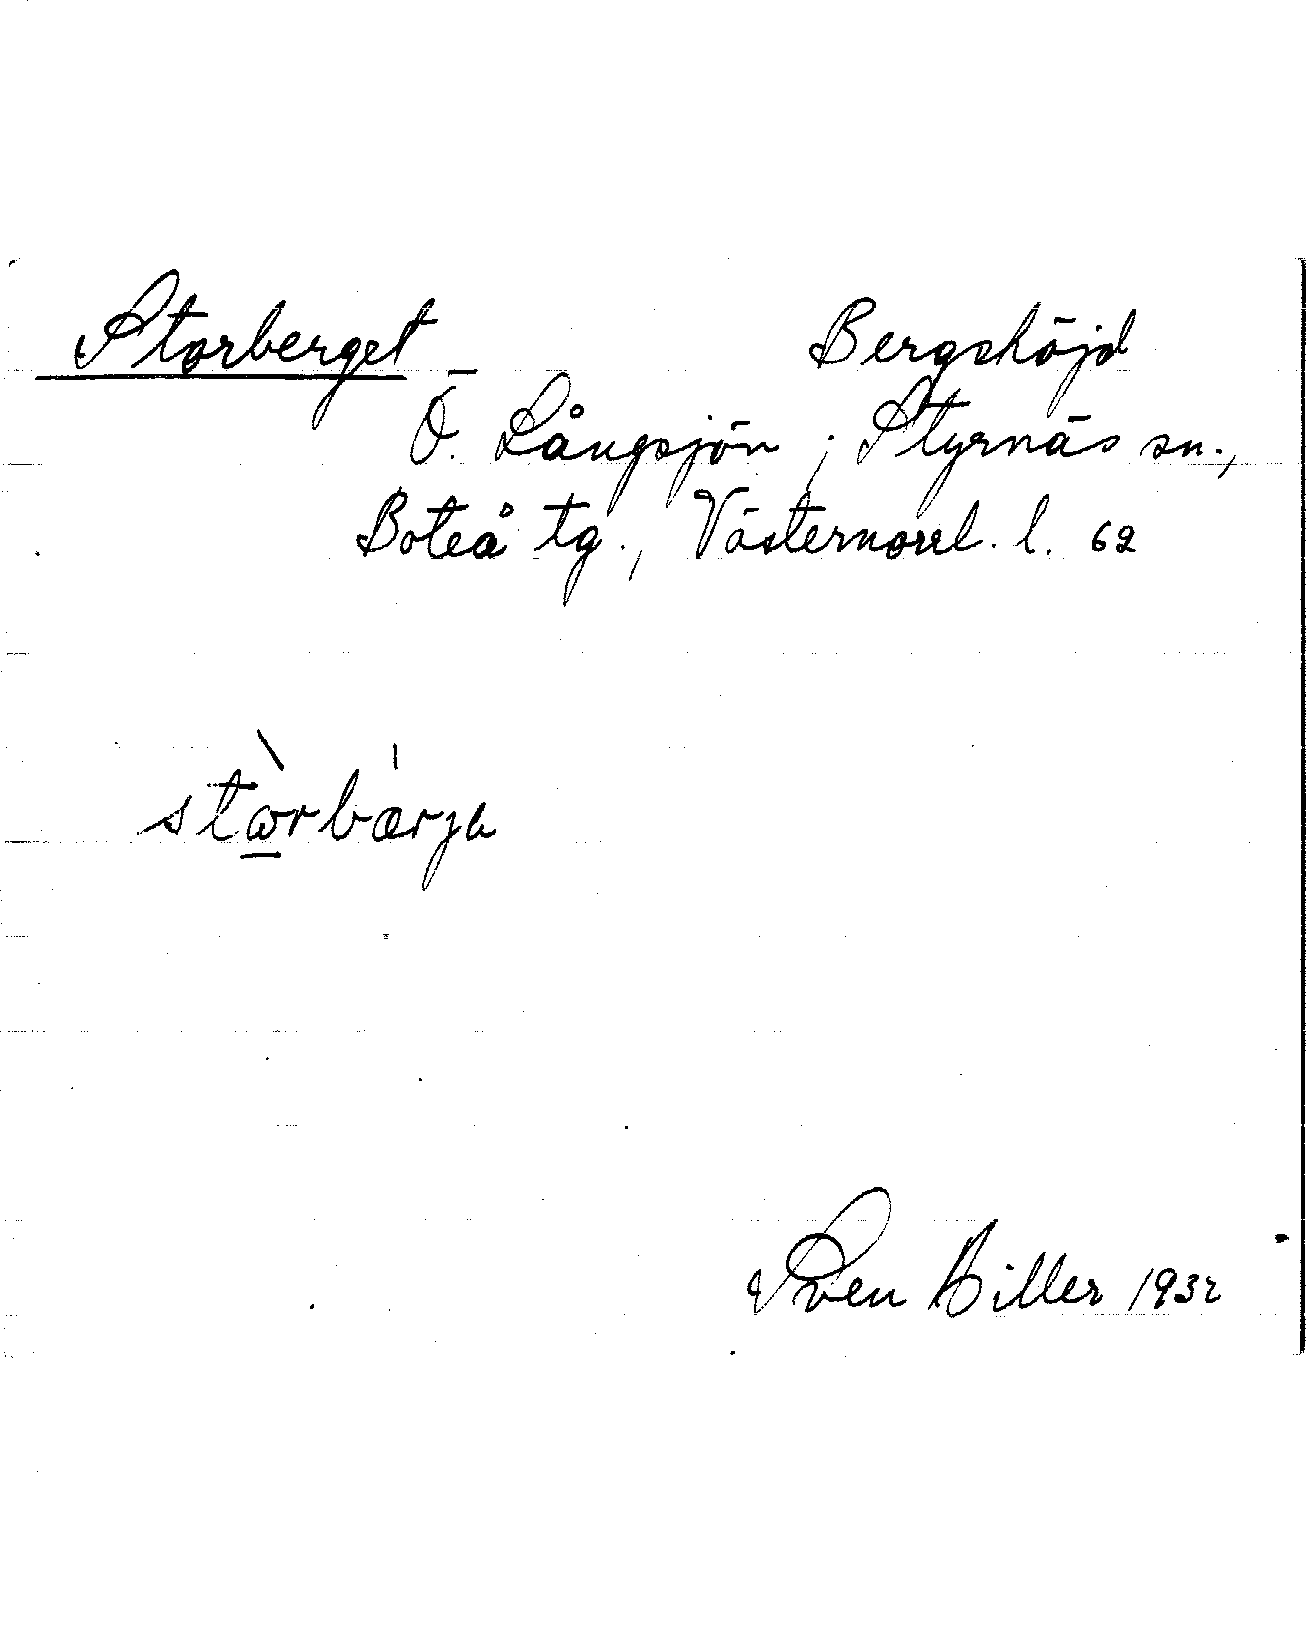 Storberget Bergshöjd
Ö. Långsjön, Styrnäs sn.,
Boteå tg., Västernorrl. l. 62
stòrbárja
Sven Hiller 1932